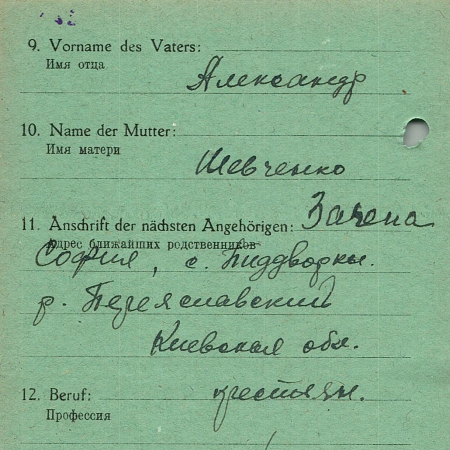 9. Vorname des Vaters:
Имя отца
Александр
10. Name der Mutter:
Имя матери
Шевченко
11. Anschrift der nächsten Angehörigen:
Адрес ближайших родственников
София, с. Пиддворки.
р. Переяславский
Киевская обл.
12. Beruf: крестьян.
Профессия